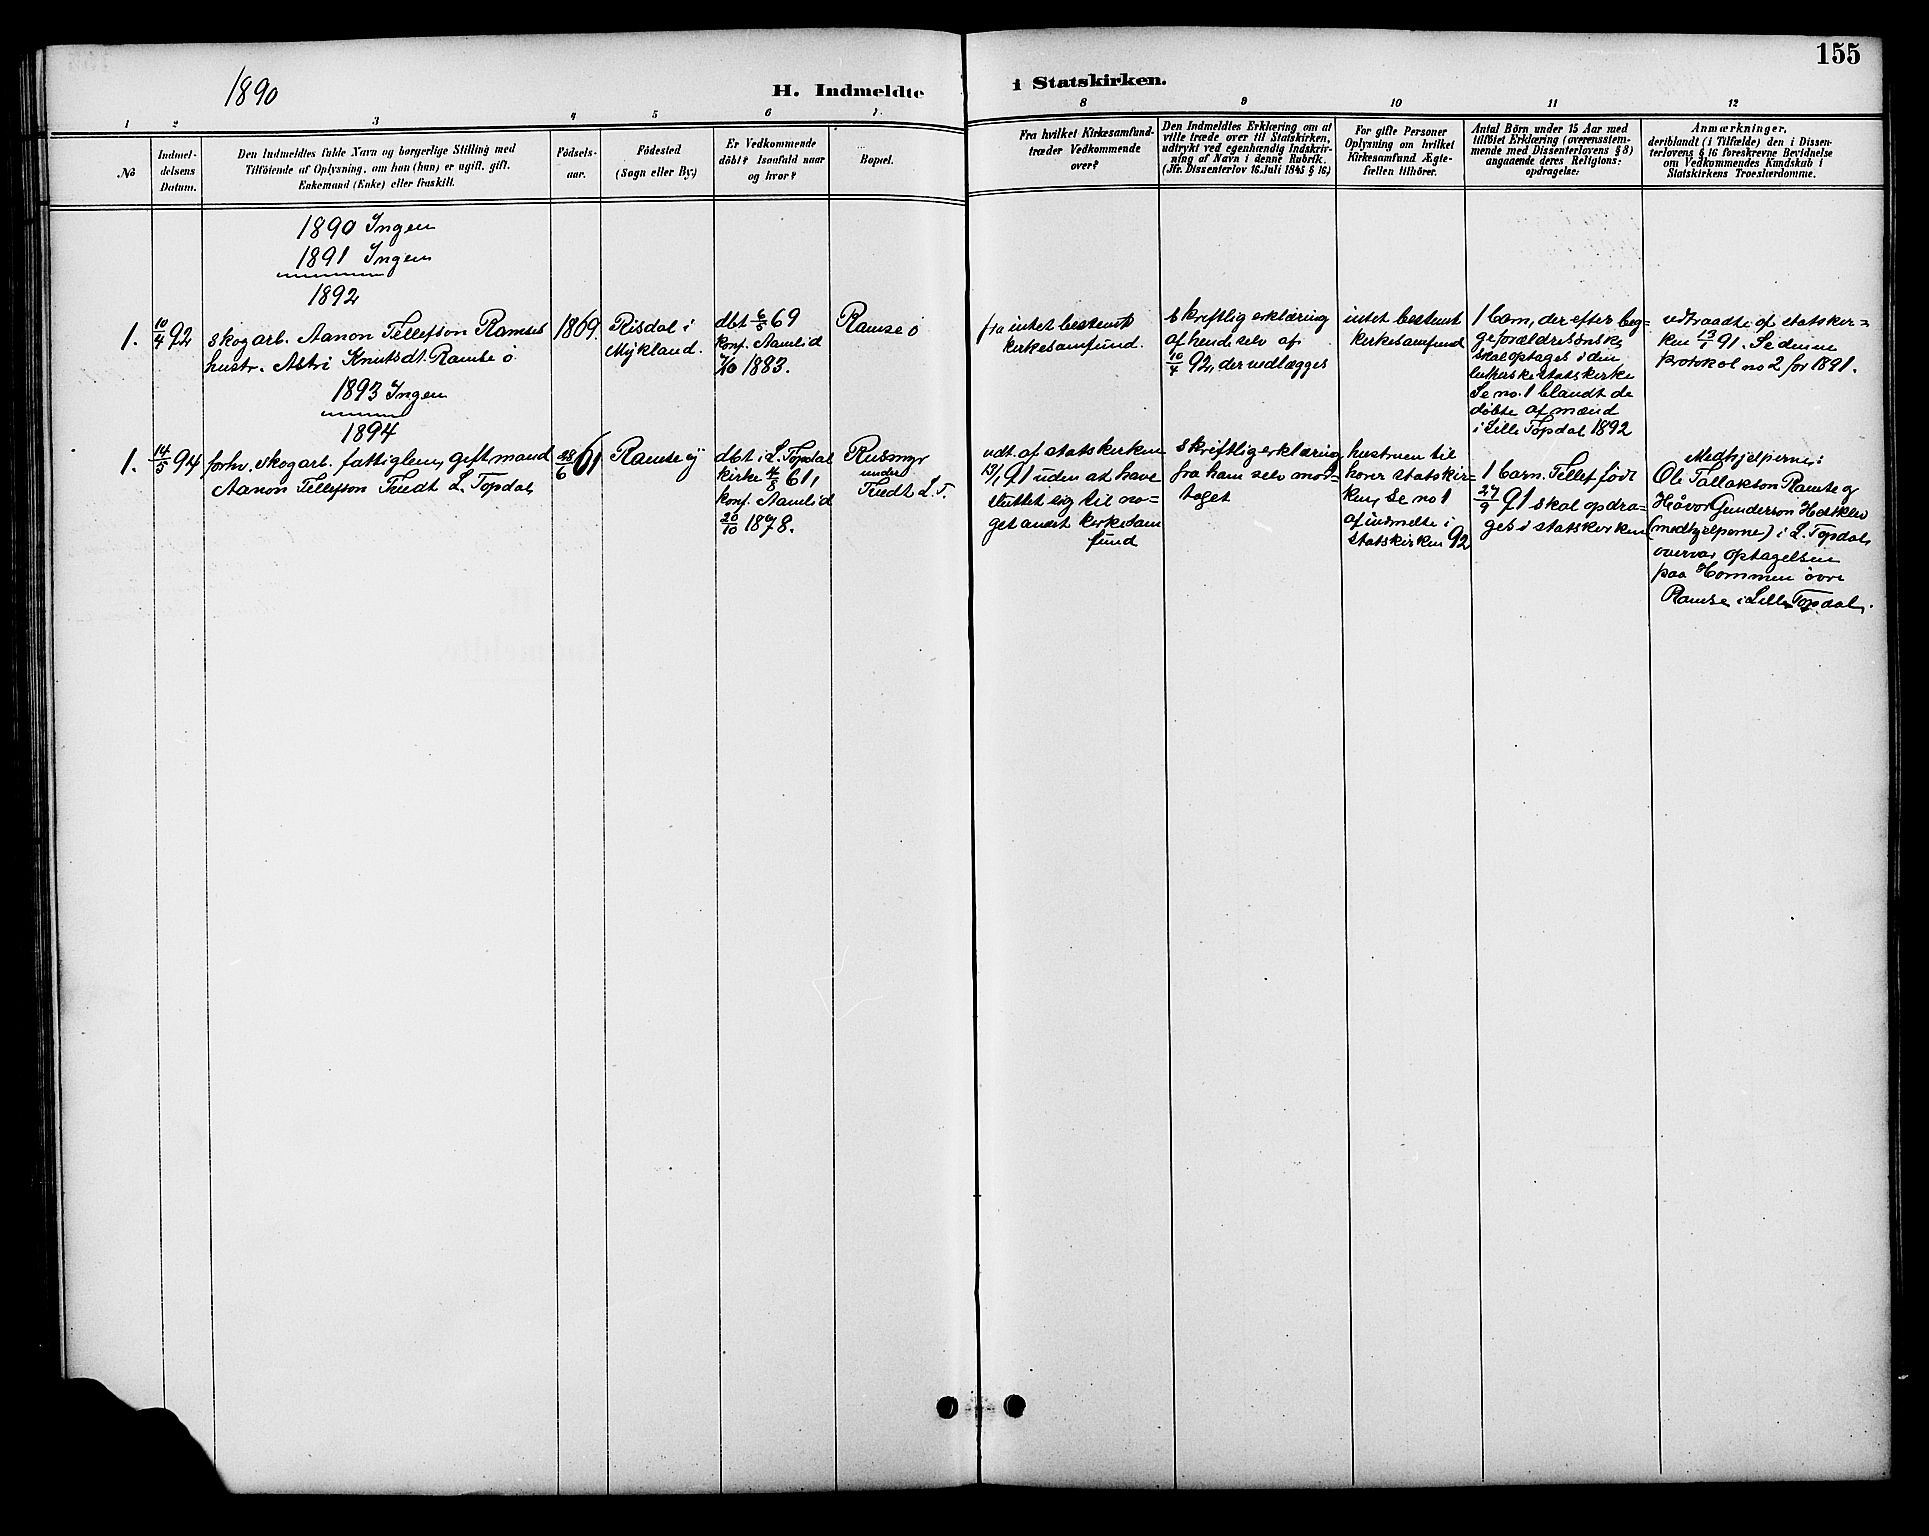 155
1890
H. Indmeldte i Statskirken.
1 2 3 4 5 6 7. 8 9 10 11 12
No
Indmel-
delsens
Datum.
Den Indmeldtes fulde Navn og borgerlige Stilling med
Tilföiende af Oplysning, om han (hun) er ugift, gift,
Enkemand (Enke) eller fraskilt.
Födsels-
aar.
Födested
(Sogn eller By.)
Er Vedkommende
döbt? Isaafald naar
og hvor?
Bopæl.
Fra hvilket Kirkesamfund
træder Vedkommende
over?
Den Indmeldtes Erklæring om at
ville træde over til Statskirken,
udtrykt ved egenhændig Indskriv-
ning af Navn i denne Rubrik.
(Jfr. Dissenterlov 16. Juli 1845 § 16.)
For gifte Personer
Oplysning om hvilket
Kirkesamfund Ægte-
fællen tilhörer.
Antal Börn under 15 Aar med
tilföiet Erklæring (overensstem-
mende med Dissenterlovens § 8)
angaaende deres Religions-
opdragelse.
Anmærkninger,
deriblandt (i Tilfælde) den i Dissen-
terlovens § 16 foreskrevne Bevidnelse
om Vedkommendes Kundskab i
Statskirkens Troeslærdomme.
1890 Ingen
1891 Ingen
1892
1. 10/4 92
skogarb. Aanon Tellefson Ramses
hustr. Astri Knutsdt. Ramse ö.
1869.
Risdal i
Mykland.
dbt 6/5 69
konf. Aamlid
7/10 1883.
Ramse ö
fra intet bestemt
kirkesamfund.
skriftlig erklæring
af hende selv af
10/4 92, der vedlægges
intet bestemt
kirkesamfund
1 barn, der efter beg-
ge forældres önske,
skal optages i den
lutherske statskirke
Se no. 1 blandt de
döbte af mænd
i Lille Topdal 1892
udtraadte af statskir-
ken 13/1 91. Se denne
protokol no 2 for 1891.
1893 Ingen
1894
1. 14/5 94
forhv. skogarb. fattiglem, gift mand
Aanon Tellefson Tvedt L. Topdal,
28/6 61
Ramse y
dbt i L. Topdal
kirke 4/8 61,
konf. Aamlid
20/10 1878.
Rusmyr
under
Tvedt L. T.
udt. af statskirken
13/1 91 uden at have
sluttet sig til no-
get andet kirkesam
fund
skriftlig erklæring
fra ham selv mod-
taget
hustruen til
hörer statskir-
ken, se no 1
af indmeldte i
statskirken 92
1 barn. Tellef födt
27/9 91 skal opdra-
ges i statskirken
Medhjelperne:
Ole Tallakson Ramse og
Håvor Gunderson
(medhjelperne) i L. Topdal,
overvar optagelsen
paa Hommen övre
Ramse i Lille Topdal.